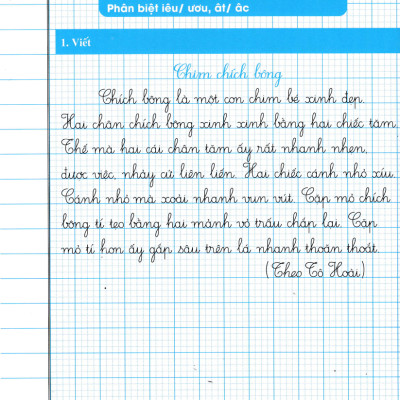 Phân biệt iêu/ ươu, ât/ âc
1. Viết
Chim chích bông
Chích bông là một con chim bé xinh đẹp.
Hai chân chích bông xinh xinh bằng hai chiếc tăm.
Thế mà hai cái chân tăm ấy rất nhanh nhẹn,
được việc, nhảy cứ liên liến. Hai chiếc cánh nhỏ xíu.
Cánh nhỏ mà xoải nhanh vun vút. Cặp mỏ chích
bông tí tẹo bằng hai mảnh vỏ trấu chắp lại. Cặp
mỏ tí hon ấy gắp sâu trên lá nhanh thoăn thoắt.
(Theo Tô Hoài)